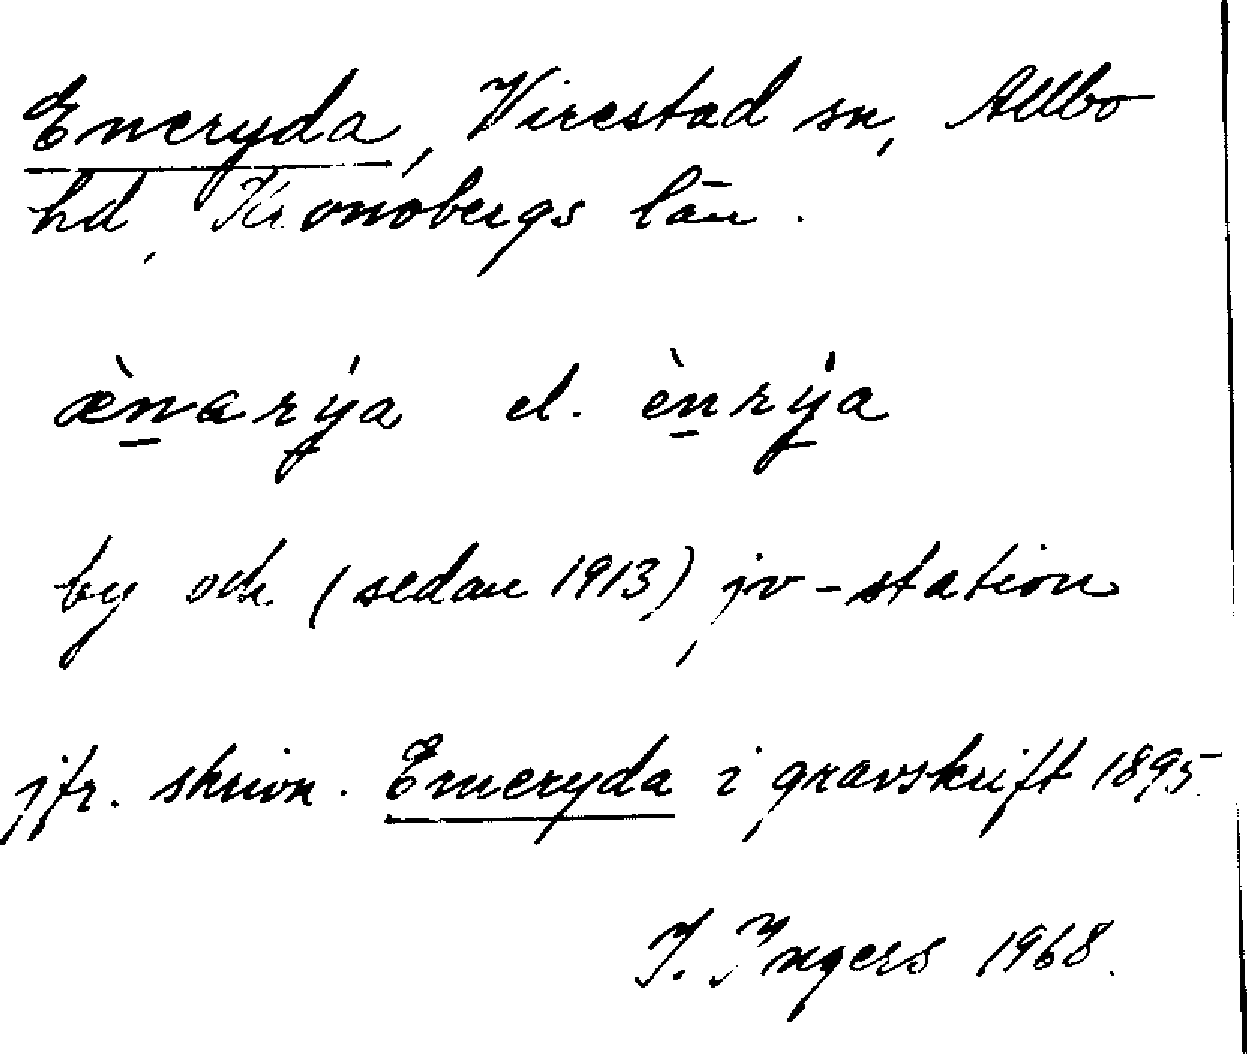 Eneryda, Virestad sn, Allbo
hd, Kronobergs län.
æ̀n̲arýa el. èn̲rýa
by och (sedan 1913) jv-station
jfr. skrivn. Eneryda i gravskrift 1895.
I. Ingers 1968.